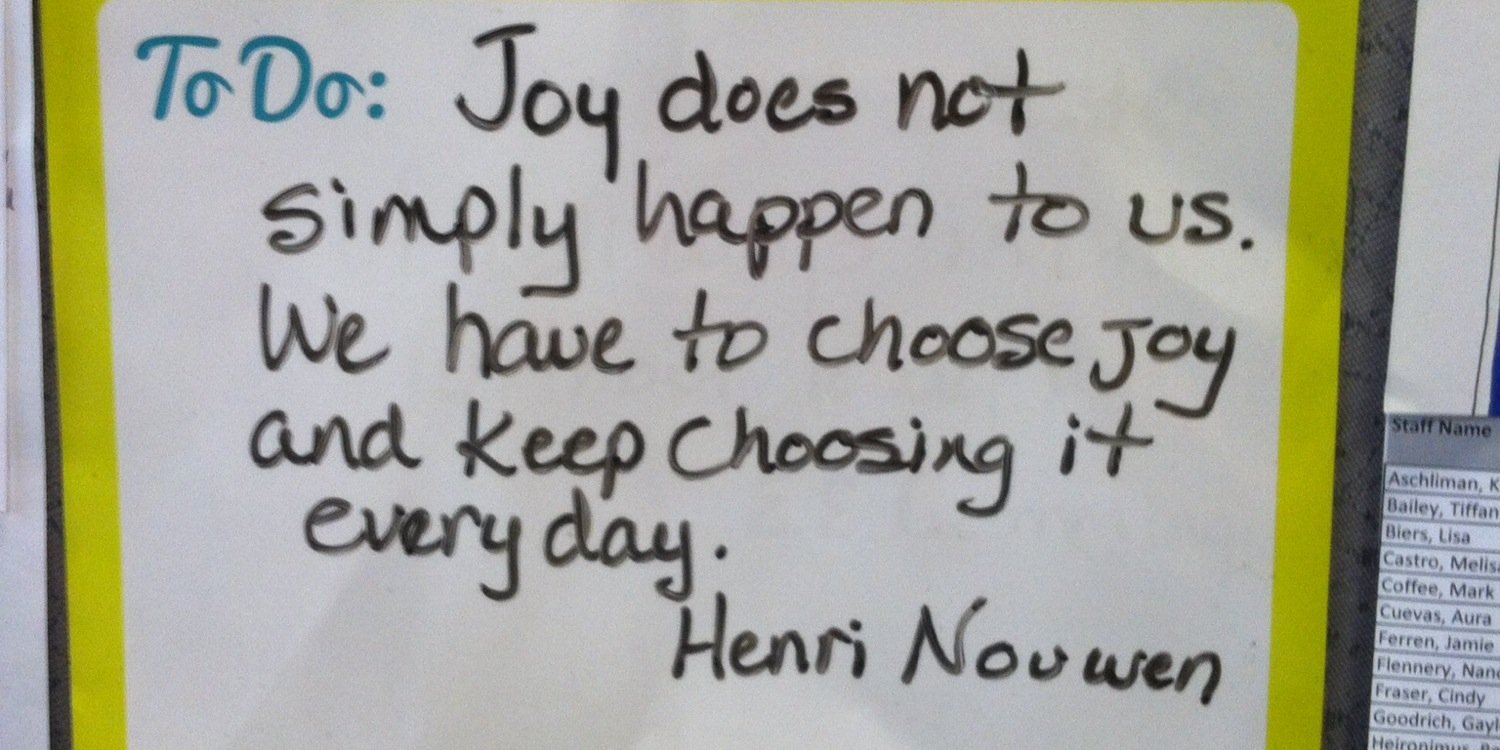 To Do: Joy does not
simply happen to us.
We have to choose joy
and keep choosing it
every day.
Henri Nouwen
Staff Name
Aschliman, K
Bailey, Tiffan
Biers, Lisa
Castro, Melis
Coffee, Mark
Cuevas, Aura
Ferren, Jamie
Flennery, Nanc
Fraser, Cindy
Goodrich, Gayl